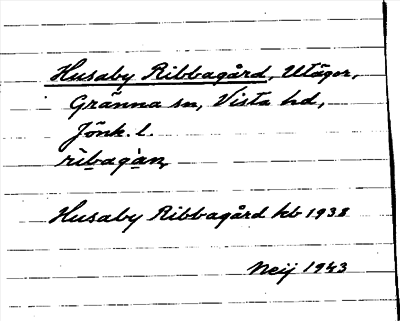 Husaby Ribbagård, Utägor,
Gränna sn, Vista hd,
Jönk. l.
Husaby Ribbagård kb 1938
Neij 1943